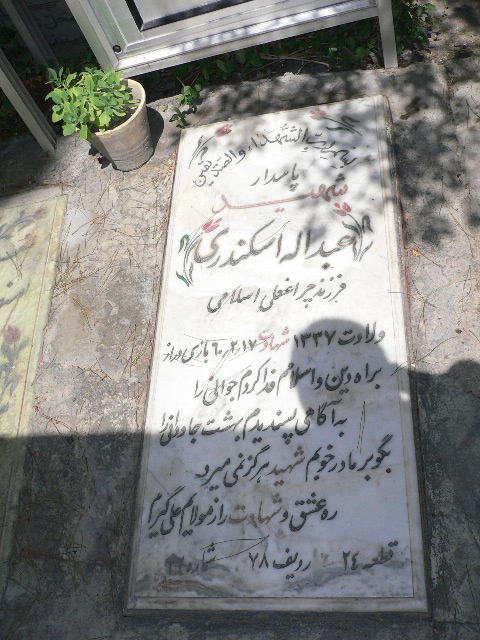 بسم رب الشهداء والصدیقین
پاسدار
شهید
عبداله اسکندری
فرزند چراغعلی اسلامی
ولادت ۱۳۳۷ شهادت ۶۰٫۲٫۱۷ بازی دراز
براه دین و اسلام فدا کردم جوانی را
به آگاهی پسندیدم بهشت جاودانی را
بگو بر مادر خوبم شهید هرگز نمی میرد
ره عشق و شهادت را ز مولایم علی گیرم
قطعه ۲۴ ردیف ۷۸ شماره